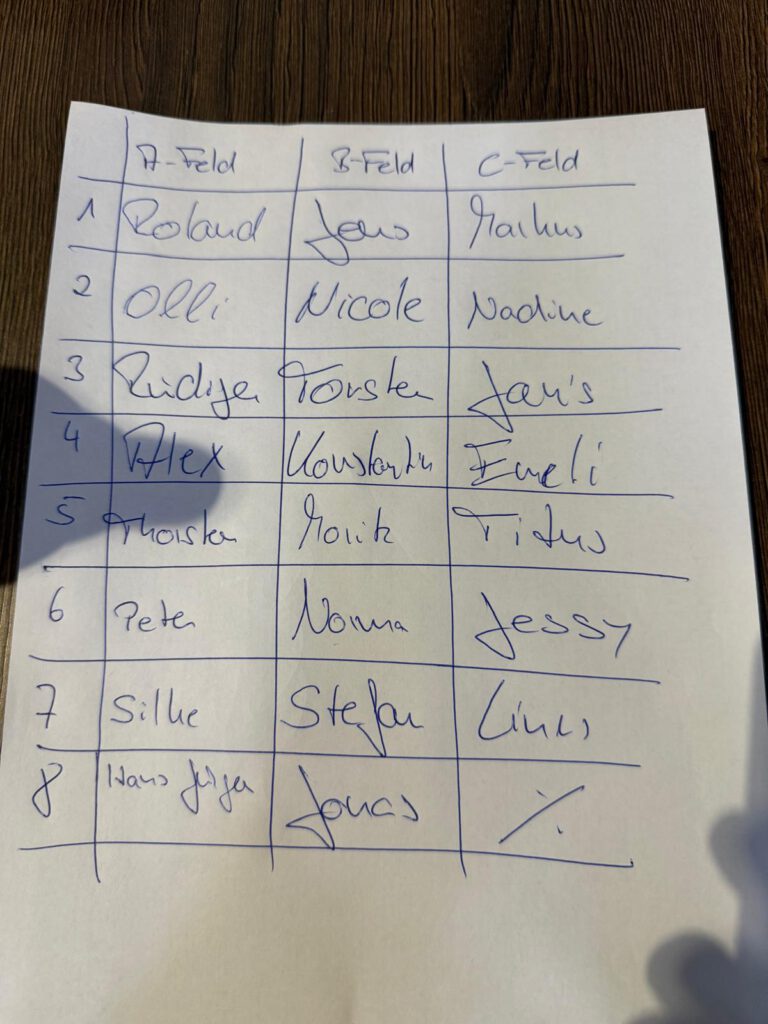 A-Feld B-Feld C-Feld
1 Roland Jens Markus
2 Olli Nicole Nadine
3 Rüdiger Torsten Jaris
4 Alex Konstantin Emeli
5 Thorsten Moritz Titus
6 Peter Norma Jessy
7 Silke Stefan Linus
8 Hans Jürgen Jonas ⁒